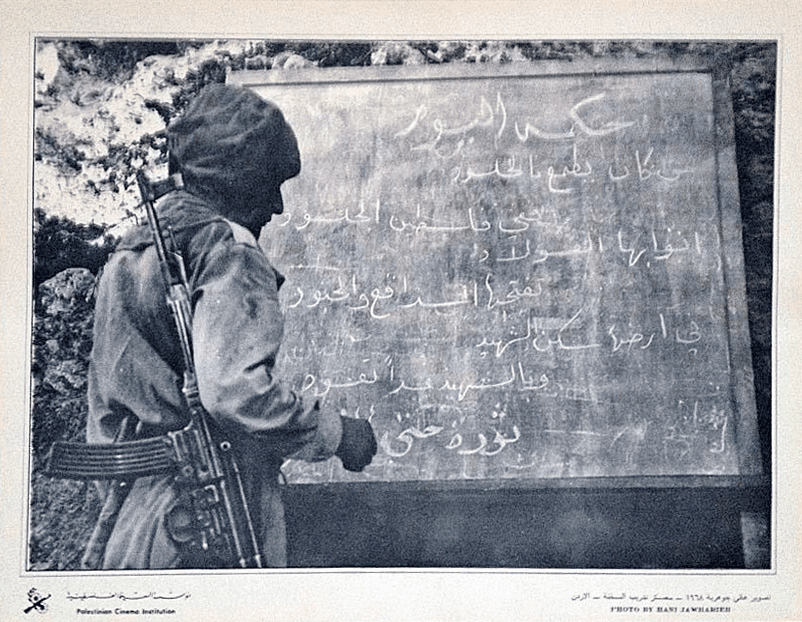 حكمة اليوم
من كان يطمع بالخلود
في فلسطين الخلود
ابوابها الفولاذ
تفتحها المدافع والجنود
في ارضها سكن الشهيد
وبالشهيد غداً تعود
ثورة حتى
مؤسسة السينما الفلسطينية
Palestinian Cinema Institution
تصوير هاني جوهرية ١٩٦٨ – معسكر تدريب السخنة – الاردن
PHOTO BY HANI JAWHARIEH